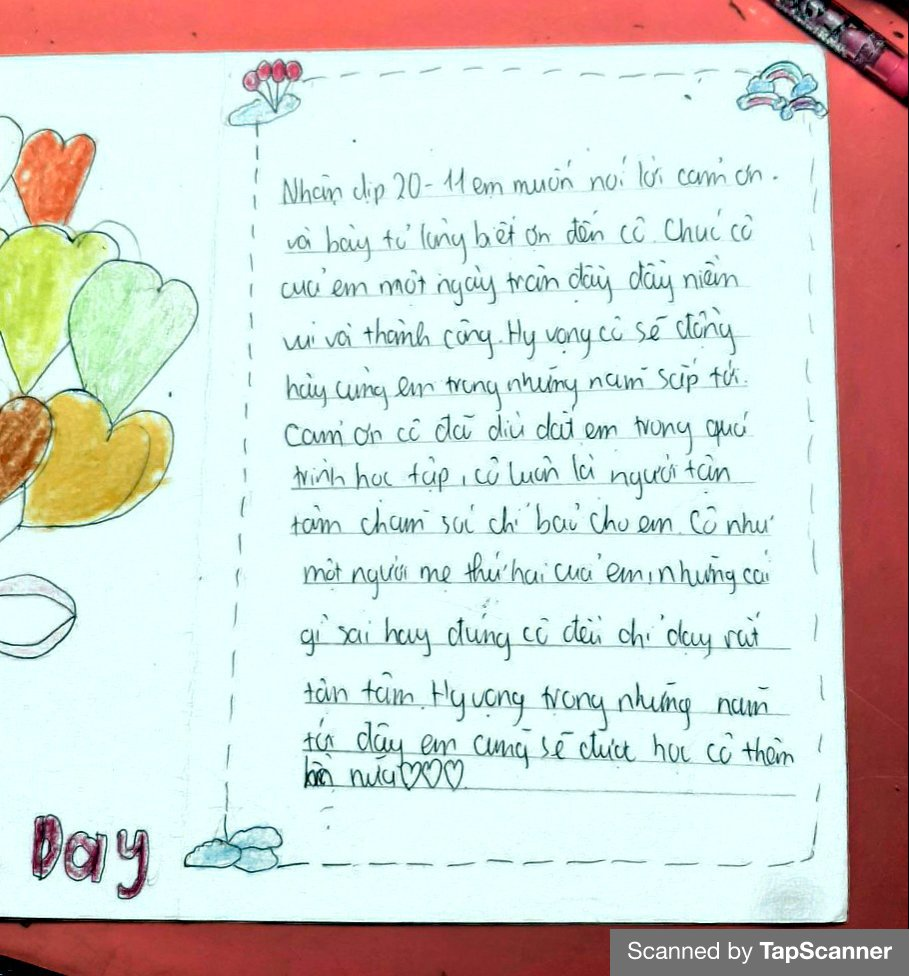 Nhân dịp 20-11 em muốn nói lời cảm ơn.
và bày tỏ lòng biết ơn đến cô. Chúc cô
của em một ngày tràn đầy đầy niềm
vui và thành công. Hy vọng cô sẽ đồng
hày cùng em trong những năm sắp tới.
Cảm ơn cô đã dìu dắt em trong quá
trình học tập, cô luôn là người tận
tâm chăm sóc chỉ bảo cho em. Cô như
một người mẹ thứ hai của em, những cái
gì sai hay đúng cô đều chỉ dạy rất
tận tâm. Hy vọng trong những năm
tới đây em cũng sẽ được học cô thêm
nữa♡♡♡
Day
Scanned by TapScanner